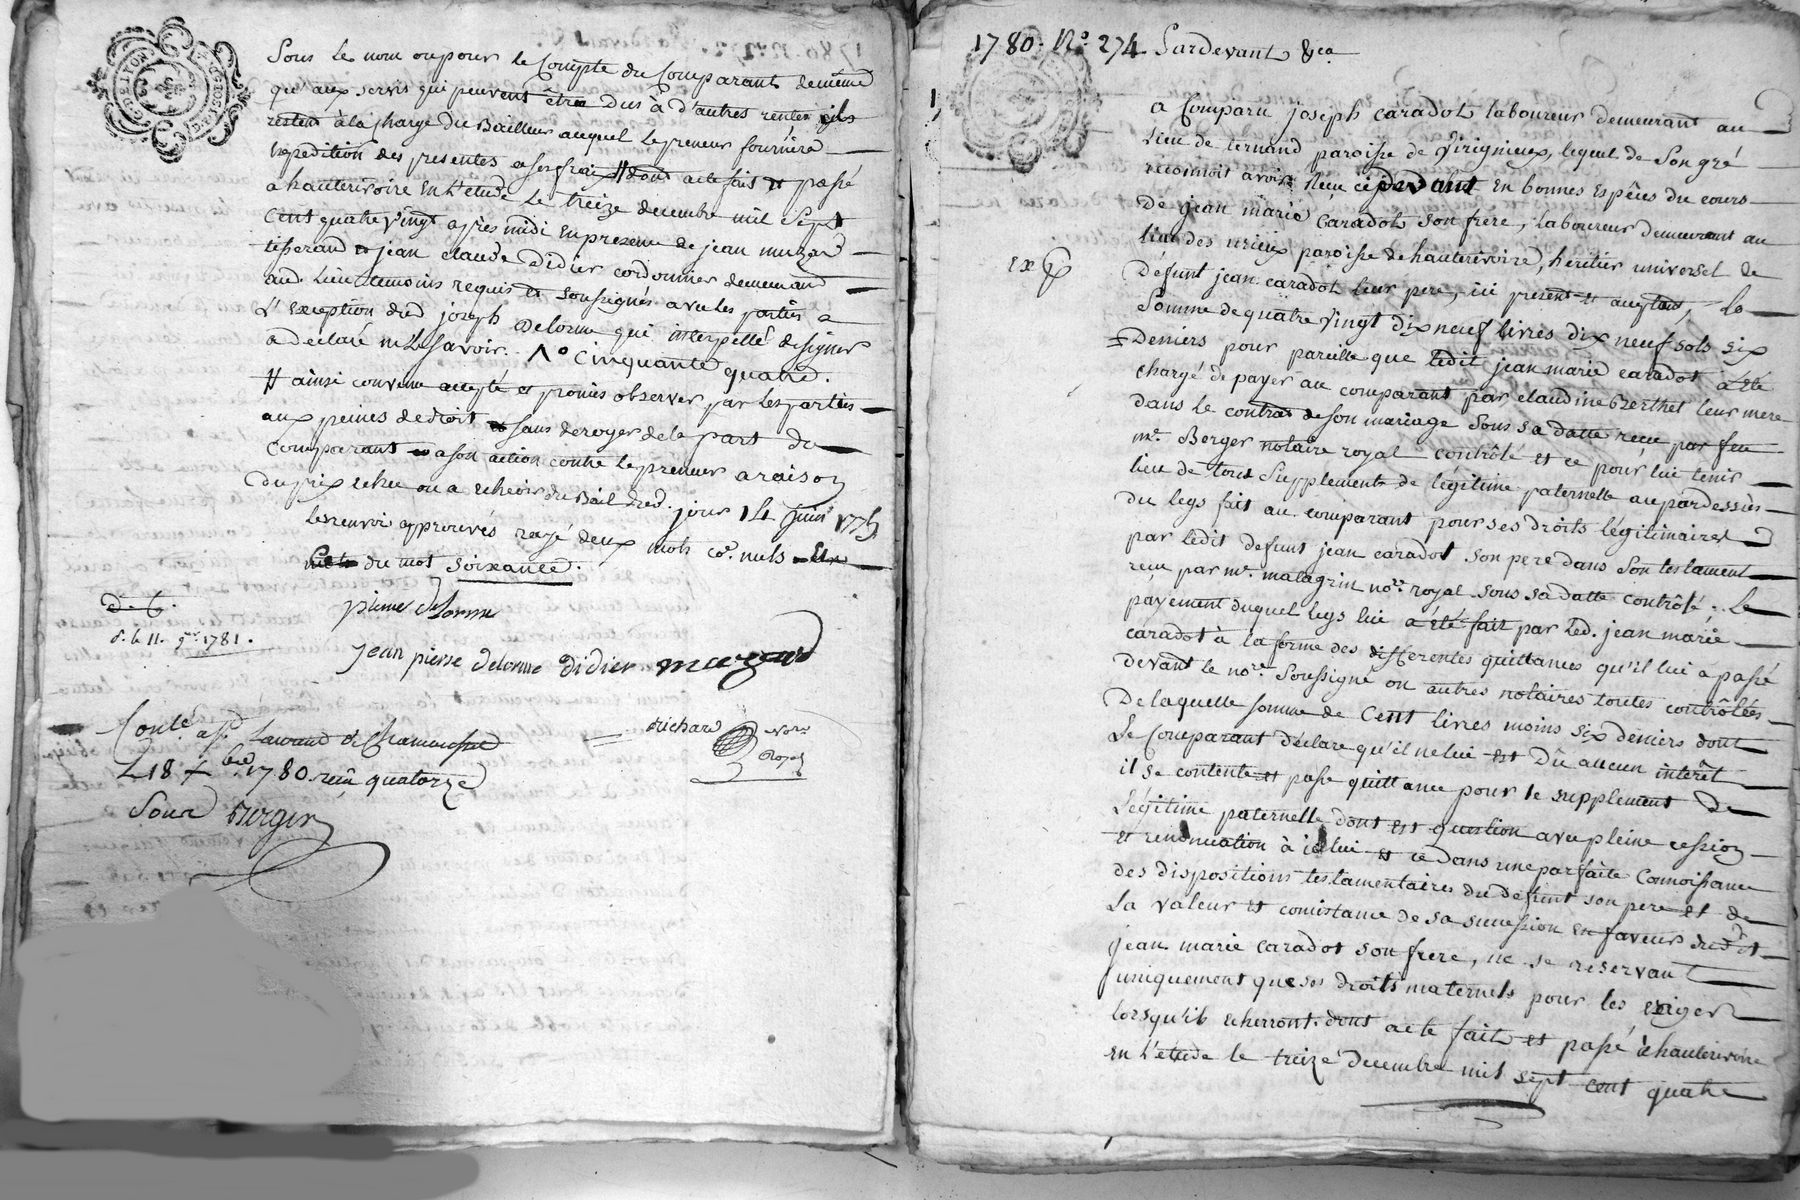 Sous le nom ou pour le Compte du Comparant de même
qu'aux servis qui peuvent être dus à d'autres rentes ils
restent à la charge du Bailleur auquel le preneur fournira
expedition des presentes a ses fraix # dont acte fait et passé
a hauterivoire En l'etude le treize decembre mil Sept
Cent quatre vingt apres midi En presence de jean muzard
tisserand et jean claude Didier cordonnier demeurand
aud. Lieu temoins requis et soussignés avec les parties a
l'exception dud joseph Delorme qui interpellé de signer
a declaré ne le savoir. 1o Cinquante quatre.
# ainsi convenu accepté et promis observer par les parties
aux peines de droit et sans deroger de la part du
Comparant a son action contre le preneur a raison
Du prix echeu ou a echeoir du Bail dud. jour 14 juin 1775
les renvoi approuvés rayé deux mots co. nuls
du mot Soixante.
D. C.
d. le 11. 9bre 1781.
pierre delorme
jean pierre delorme didier muzard
Richard Nore
Royal
Contlé a St Laurend de Chamousset
L 18 Xbre 1780 reçu quatorze
Sous Burgin
1780. No. 274 Pardevant &ca
a Comparu joseph caradot laboureur demeurant au
Lieu de ternand paroisse de Virignieux, lequel de Son gré
reconnoit avoir Reçu cy devant En bonnes Espèces du cours
De jean marie Caradot son frere, laboureur demeurant au
lieu des mieux paroisse de hauterivoire, heritier universel de
Défunt jean caradot leur pere, ici present et acceptant, la
Somme de quatre vingt dix neuf livres dix neuf sols six
Deniers pour pareille que ledit jean marie caradot a été
chargé de payer au comparant par claudine Berthet leur mere
dans le contrat de son mariage Sous sa datte reçu par feu
me. Berger notaire royal contrôlé et ce pour lui tenir
lieu de tout Supplement de légitime paternelle au pardessus
du legs fait au comparant pour ses droits légitimaires
par ledit defunt jean caradot son pere dans Son testament
reçu par me. malagrin nore. royal sous sa datte contrôlé. Le
payement duquel legs lui a été fait par Led. jean marie
caradot à la forme des differentes quittances qu'il lui a passé
devant le nore. Soussigné ou autres notaires toutes contrôlées
De laquelle somme de Cent livres moins six deniers dont
Le Comparant déclare qu'il ne lui est Dû aucun intérêt
il se contente et passe quittance pour le supplement De
Légitime paternelle dont est question avec pleine cession
et renonciation à icelui et ce dans une parfaite Connoissance
des dispositions testamentaires du défunt son pere et de
La valeur et consistance de sa succession en faveur dudit
jean marie caradot son frere, ne se reservant
uniquement que ses droits maternels pour les exiger
lorsqu'ils echerront. dont acte fait et passé à hauterivoire
en l'étude le treize decembre mil sept cent quatre